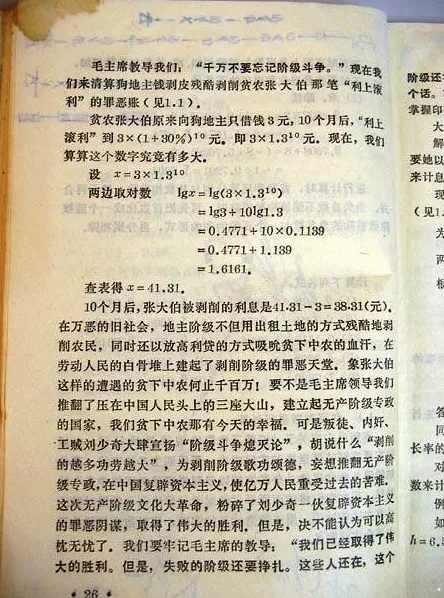 毛主席教导我们：“千万不要忘记阶级斗争。”现在我
们来清算狗地主钱剥皮残酷剥削贫农张大伯那笔“利上滚
利”的罪恶账（见1.1）。
贫农张大伯原来向狗地主只借钱3元，10个月后，“利上
滚利”到3×(1+30%)¹⁰元。即3×1.3¹⁰元。现在，我们
算算这个数字究竟有多大。
设 x=3×1.3¹⁰
两边取对数 lgx=lg(3×1.3¹⁰)
=lg3+10lg1.3
=0.4771+10×0.1139
=0.4771+1.139
=1.6161.
查表得x=41.31.
10个月后，张大伯被剥削的利息是41.31-3=38.31(元)。
在万恶的旧社会，地主阶级不但用出租土地的方式残酷地剥
削农民，同时还以放高利贷的方式吸吮贫下中农的血汗，在
劳动人民的白骨堆上建起了剥削阶级的罪恶天堂。象张大伯
这样的遭遇的贫下中农何止千百万！要不是毛主席领导我们
推翻了压在中国人民头上的三座大山，建立起无产阶级专政
的国家，我们贫下中农那有今天的幸福。可是叛徒、内奸、
工贼刘少奇大肆宣扬“阶级斗争熄灭论”，胡说什么“剥削
的越多功劳越大”，为剥削阶级歌功颂德，妄想推翻无产阶
级专政，在中国复辟资本主义，使亿万人民重受过去的苦难。
这次无产阶级文化大革命，粉碎了刘少奇一伙复辟资本主义
的罪恶阴谋，取得了伟大的胜利。但是，决不能认为可以高
枕无忧了。我们要牢记毛主席的教导：“我们已经取得了伟
大的胜利。但是，失败的阶级还要挣扎。这些人还在，这个
·26·
阶级还
个话。
掌握印
大
解
要她以
来计息
现
（见1.
为
两
根
答
同
长率的
对
数来计
例
如
h=6.